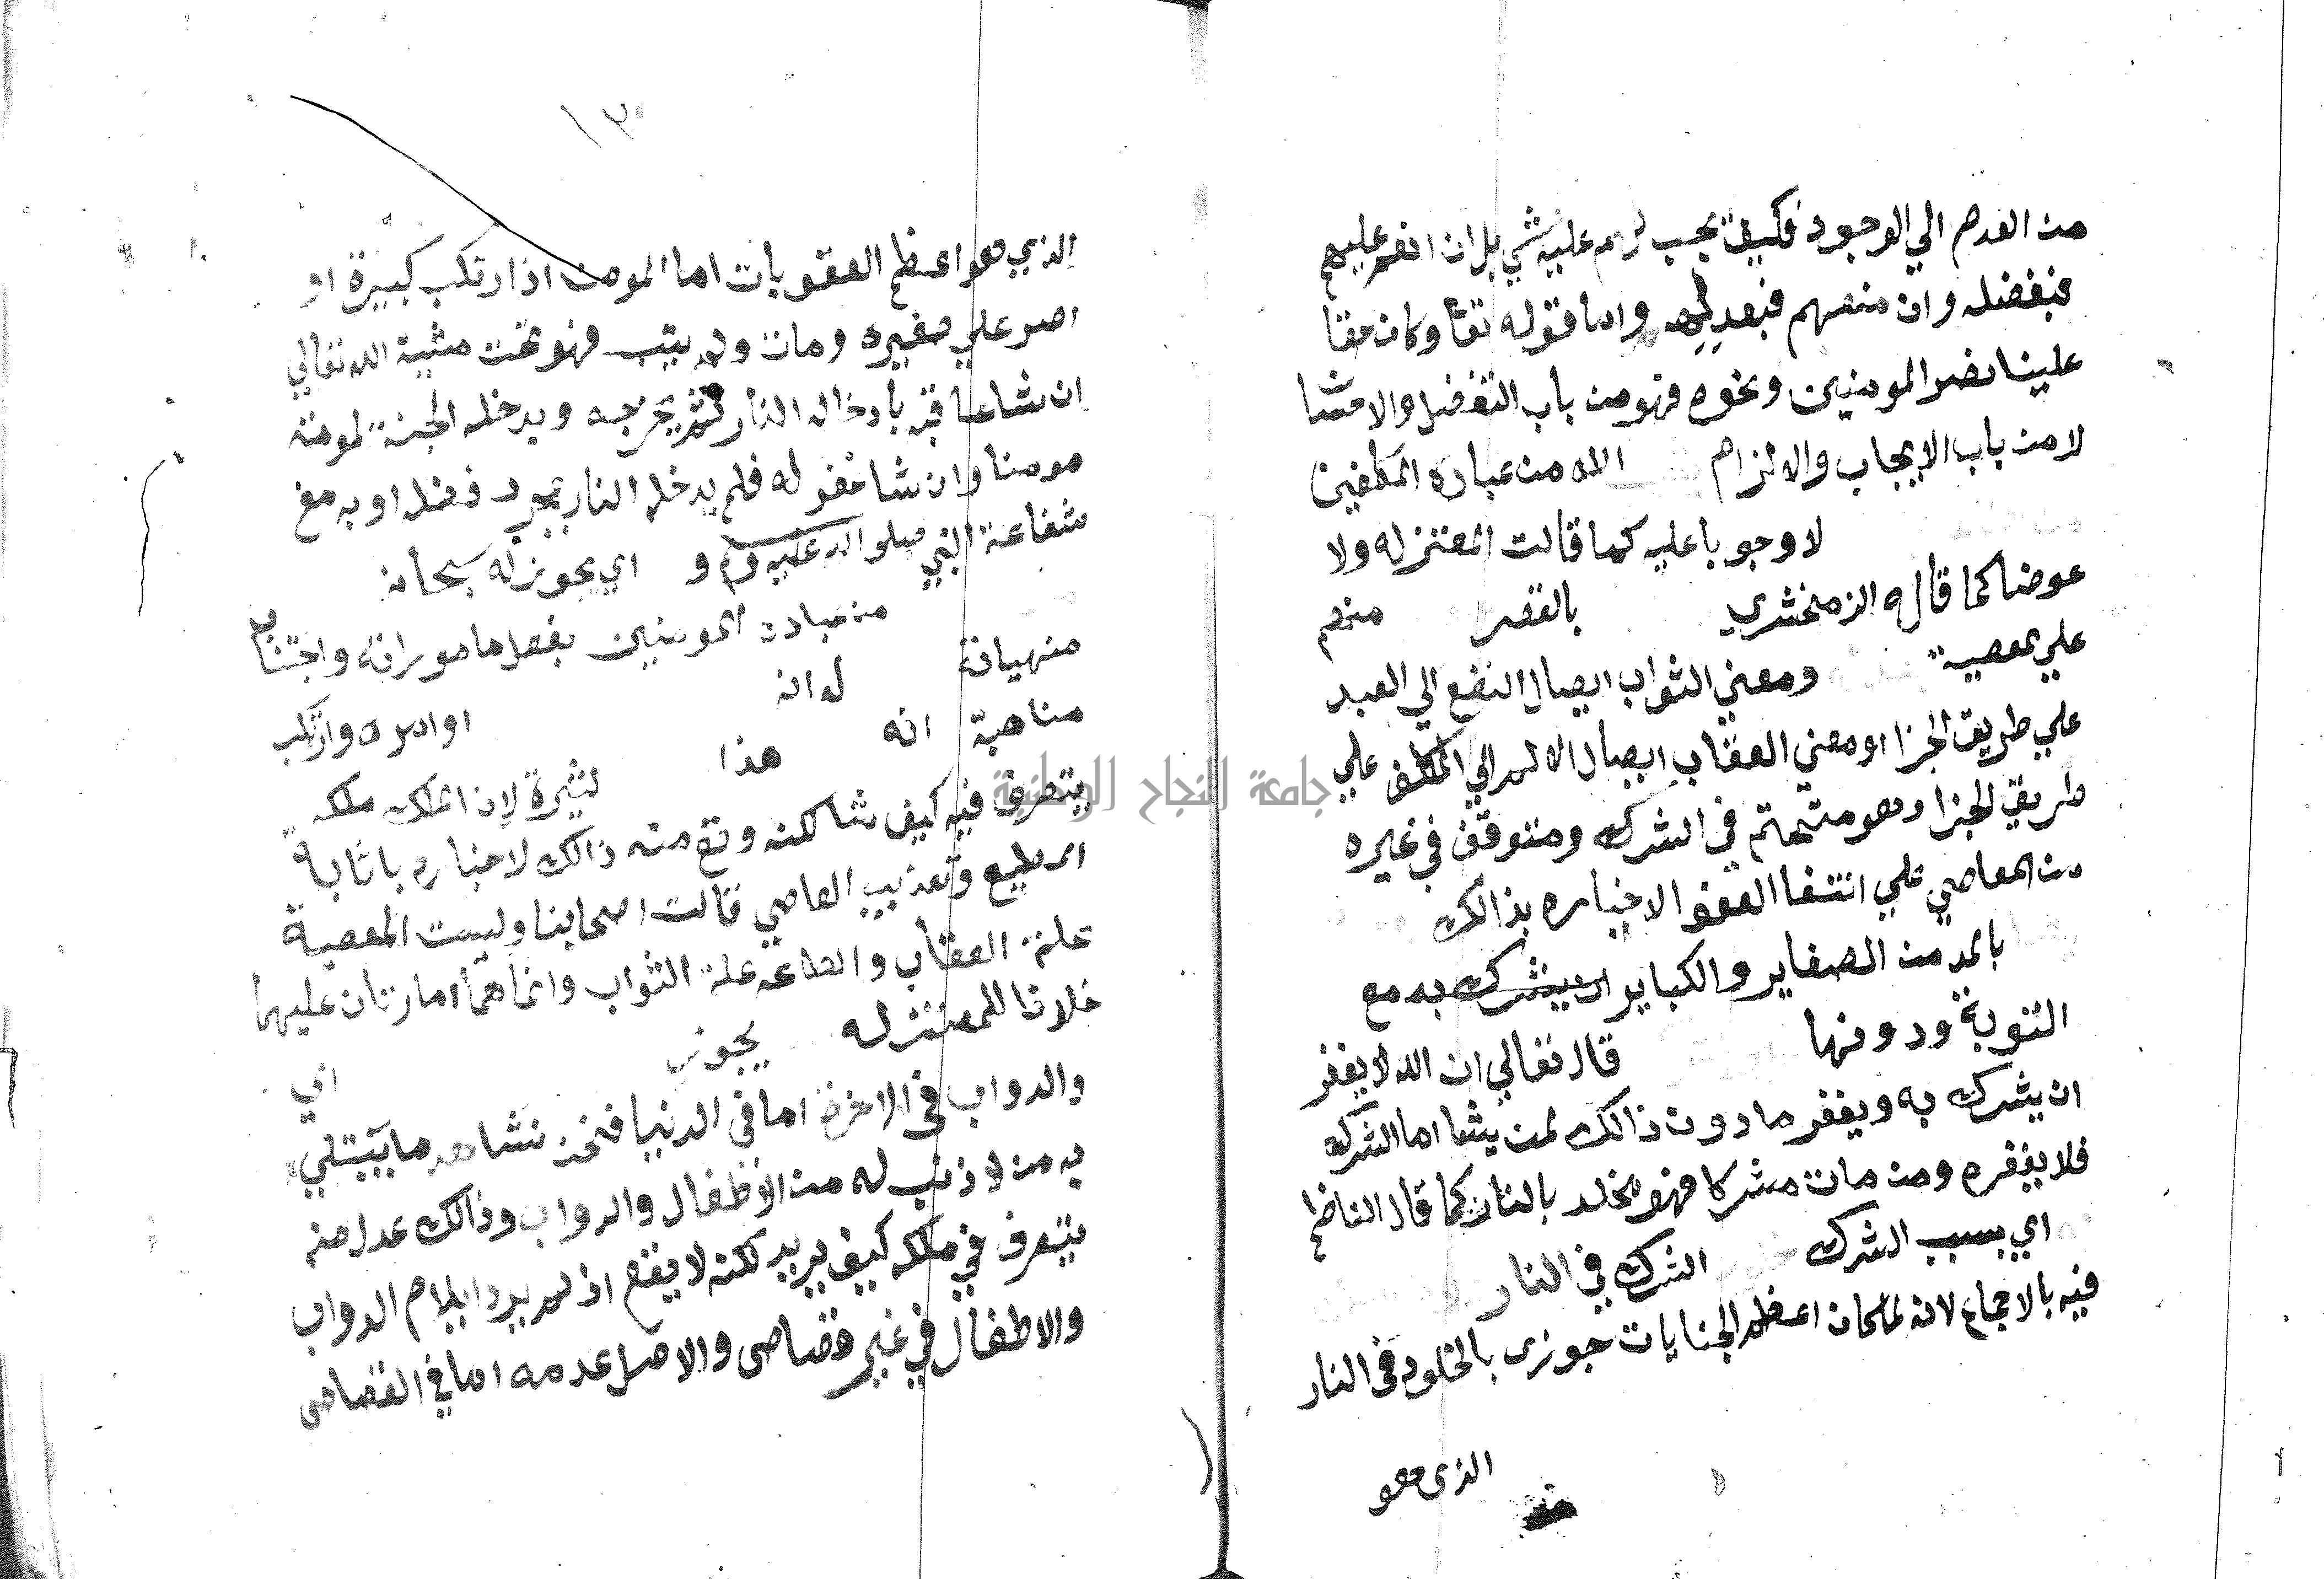 من العدم الي الوجود فكيف يجب لهم عليه شي بل ان انعم عليهم
فبفضله وان منعهم فبعدله واما قوله تعا وكان حقا
علينا نصر المومنين ونحوه فهو من باب التفضل والامتنا
لا من باب الايجاب والالزام الله من عباده المكلفين
لا وجوبا عليه كما قالت المعتزله ولا
عوضا كما قاله الزمخشري بالقصر منهم
علي معصية ومعني الثواب ايصال النفع الي العبد
علي طريق الجزا ومعني العقاب ايصال الالم الي المكلف علي
طريق الجزا وهو متحتم في الشرك ومتوقف في غيره
من المعاصي علي انتفا العفو الاخباره بذالك
بالمد من الصغاير والكباير ان يشرك به مع
التوبة ودونها قال تعالي ان الله لا يغفر
ان يشرك به ويغفر ما دون ذالك لمن يشا اما الشرك
فلا يغفره ومن مات مشركا فهو مخلد بالنار كما قال الناظم
اي بسبب الشرك الشرك في النار
فيه بالاجماع لانه لما كان اعظم الجنايات جوزي بالخلود في النار
الذي هو
١٣
الذي هو اعظم العقوبات اما المومن اذا ارتكب كبيرة او
اصر علي صغيره ومات ولم يتب فهو تحت مشية الله تعالي
ان شا عاقبه بادخاله النار ثم يخرجه ويدخله الجنة لموته
مومنا وان شا غفر له فلم يدخله النار بمجرد فضله او به مع
شفاعة النبي صلي الله عليه وم و اي يجوز له سبحانه
من عباده المومنين بفعل ماموراته واجتناب
منهياته له انه اوامره وارتكب
مناهية انه هذا لثيرة لان الملك ملكه
يتصرف فيه كيف شا لكنه وقع منه ذالك لاخباره باثابة
المطيع وتعذيب العاصي قالت اصحابنا وليست المعصية
علة العقاب والطاعه علة الثواب وانما هما امارتان عليهما
خلافا للمعتزله يجوز اي
والدواب في الاخرة اما في الدنيا فنحن نشاهد ما يبتلي
به من لا ذنب له من الاطفال والدواب وذالك عدل منه
يتصرف في ملكه كيف يريد لكنه لا يقع اذ لم يرد ايلام الدواب
والاطفال في غير قصاص والاصل عدمه اما في القصاص
جامعة النجاح الوطنية